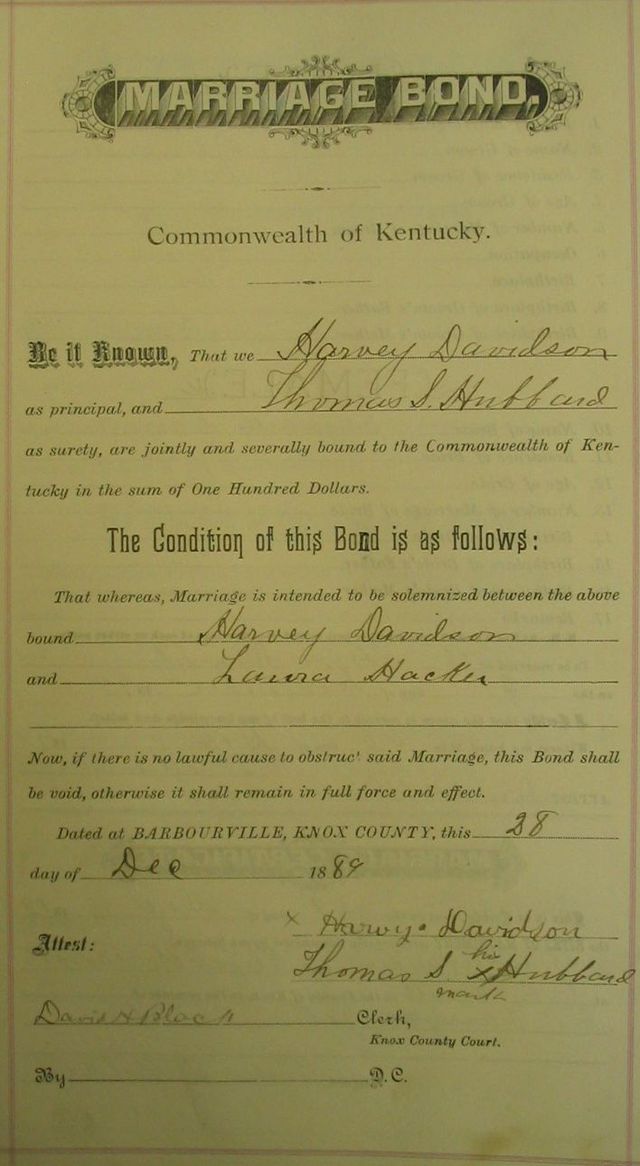 MARRIAGE BOND,
Commonwealth of Kentucky.
Be it Known, That we Harvey Davidson
as principal, and Thomas S. Hubbard
as surety, are jointly and severally bound to the Commonwealth of Ken-
tucky in the sum of One Hundred Dollars.
The Condition of this Bond is as follows:
That whereas, Marriage is intended to be solemnized between the above
bound Harvey Davidson
and Laura Hacker
Now, if there is no lawful cause to obstruc' said Marriage, this Bond shall
be void, otherwise it shall remain in full force and effect.
Dated at BARBOURVILLE, KNOX COUNTY, this 28
day of Dec 1889
x Harvy Davidson
Attest:
his
Thomas S. x Hubbard
mark
David H Black Clerk,
Knox County Court.
By D.C.